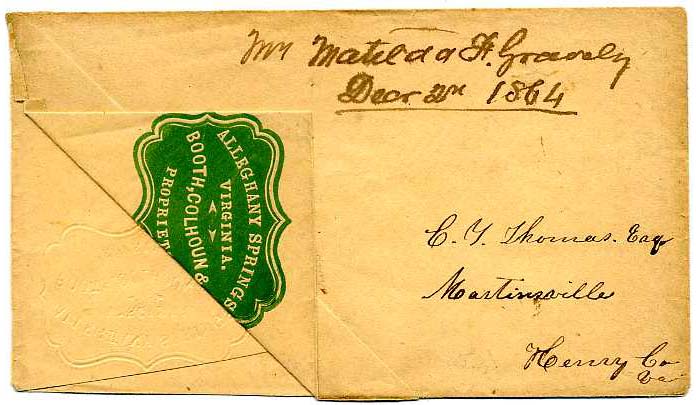 Mrs Matilda F. Gravely
Decr 2n 1864
ALLEGHANY SPRINGS
VIRGINIA.
BOOTH, COLHOUN &
PROPRIET
C. Y. Thomas. Esq
Martinsville
Henry Co
Va